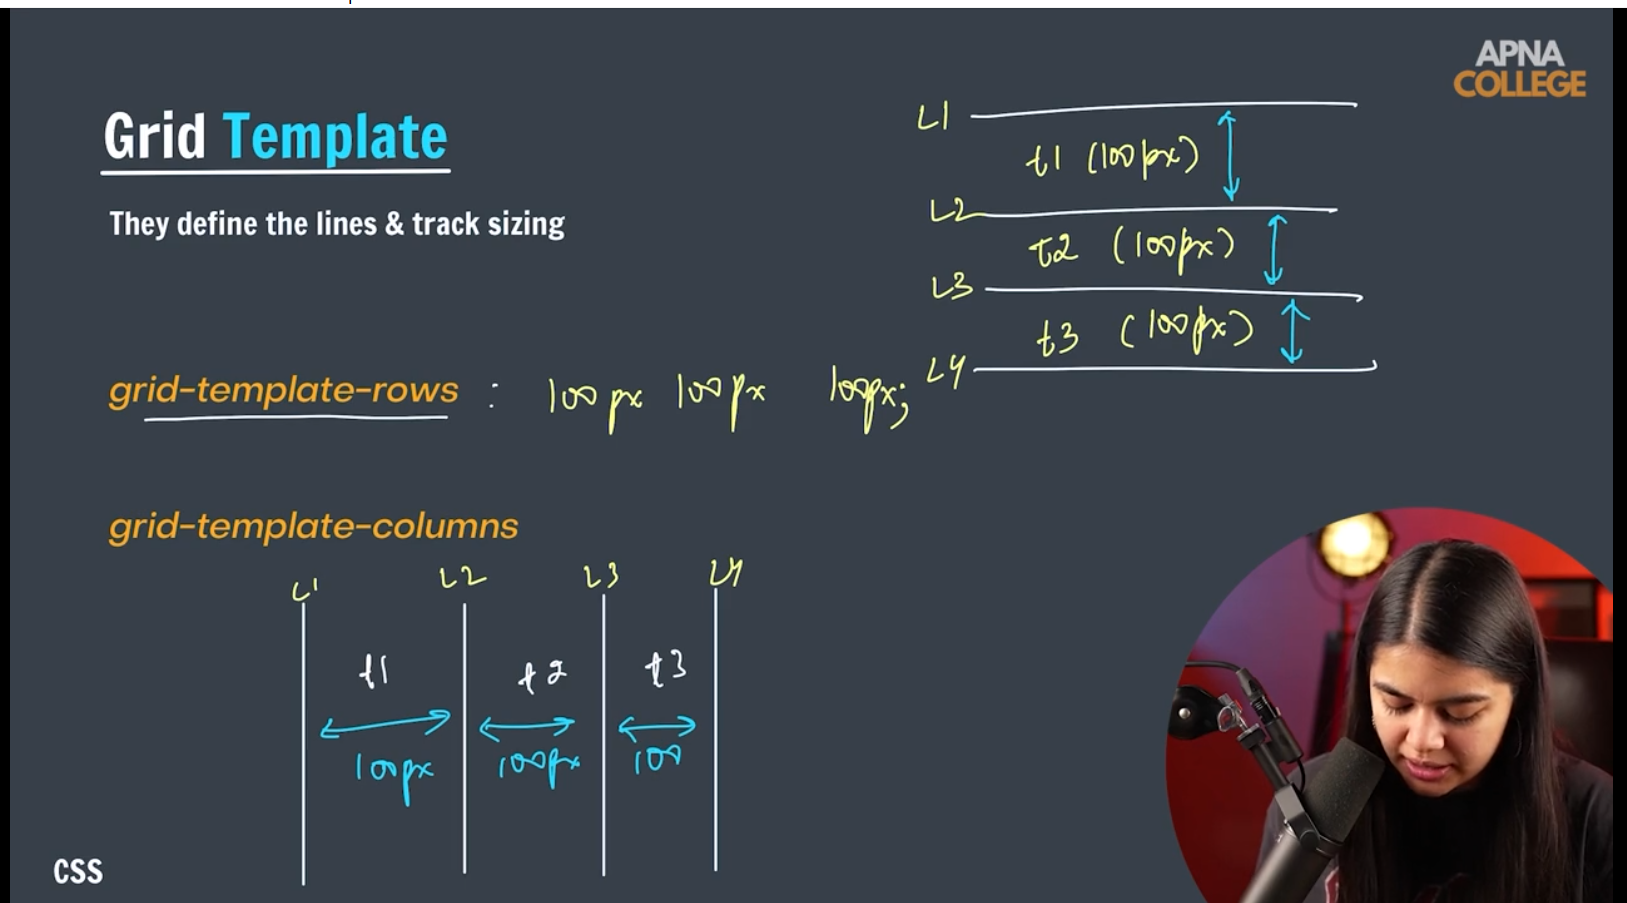 APNA
COLLEGE
Grid Template
They define the lines & track sizing
L1
t1 (100px)
L2
t2 (100px)
L3
t3 (100px)
L4
grid-template-rows : 100px 100px 100px;
grid-template-columns
L1 L2 L3 L4
t1 t2 t3
100px 100px 100
CSS